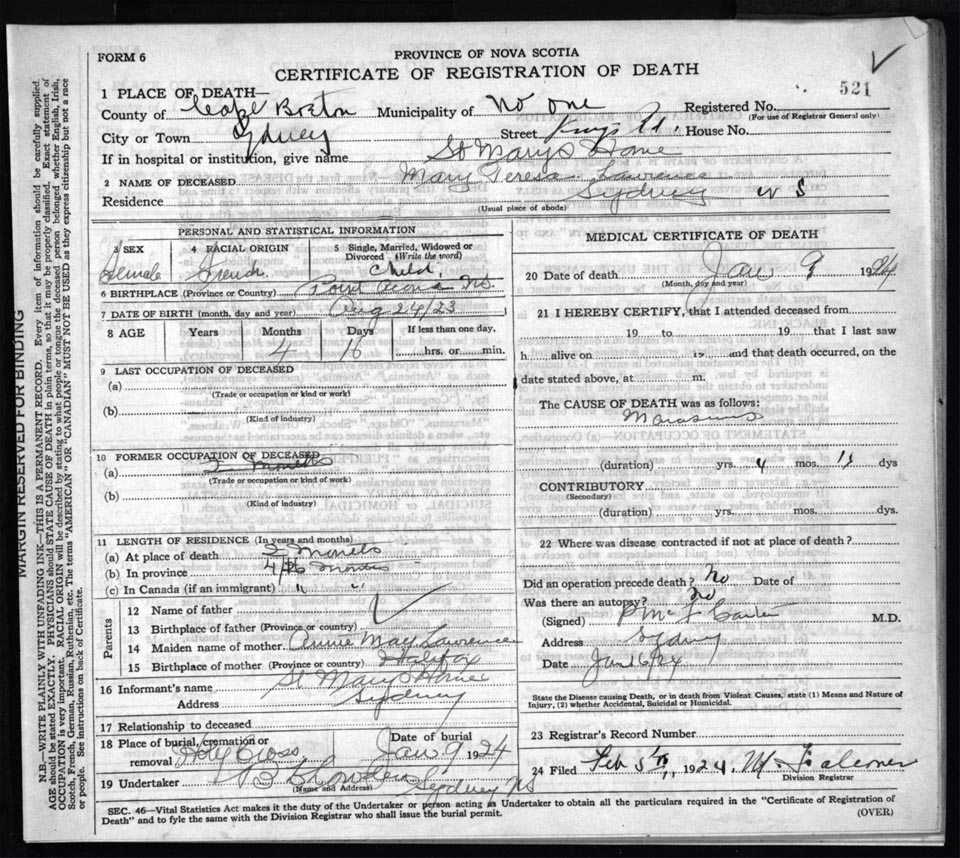 FORM 6
PROVINCE OF NOVA SCOTIA
CERTIFICATE OF REGISTRATION OF DEATH
521
1 PLACE OF DEATH—
County of Cape Breton Municipality of No one Registered No.
(For use of Registrar General only)
City or Town Sydney Street Kings Rd. House No.
If in hospital or institution, give name St Marys Home
2 NAME OF DECEASED Mary Teresa Lawrence
Residence Sydney N S
(Usual place of abode)
PERSONAL AND STATISTICAL INFORMATION
3 SEX 4 RACIAL ORIGIN 5 Single, Married, Widowed or Divorced (Write the word)
Female French Child
6 BIRTHPLACE (Province or Country) Point Aconi NS.
7 DATE OF BIRTH (month, day and year) Aug 24/23
8 AGE Years Months Days If less than one day,
4 16 hrs. or min.
9 LAST OCCUPATION OF DECEASED
(a)
(Trade or occupation or kind or work)
(b)
(Kind of industry)
10 FORMER OCCUPATION OF DECEASED
(a) 2 Months
(Trade or occupation or kind of work)
(b)
(Kind of industry)
11 LENGTH OF RESIDENCE (In years and months)
(a) At place of death 2 Months
(b) In province 4 Months
(c) In Canada (if an immigrant) " "
Parents
12 Name of father
13 Birthplace of father (Province or country)
14 Maiden name of mother Annie May Lawrence
15 Birthplace of mother (Province or country) Halifax
16 Informant's name St Marys Home
Address Sydney
17 Relationship to deceased
18 Place of burial, cremation or removal Holy Cross Date of burial Jan. 9 1924
19 Undertaker Sydney NS
(Name and Address)
MEDICAL CERTIFICATE OF DEATH
20 Date of death Jan 9 1924
(Month, day and year)
21 I HEREBY CERTIFY, that I attended deceased from
19 to 19 that I last saw
h alive on 19 and that death occurred, on the
date stated above, at m.
The CAUSE OF DEATH was as follows:
Marasmus
(duration) yrs. 4 mos. 11 dys
CONTRIBUTORY
(Secondary)
(duration) yrs. mos. dys.
22 Where was disease contracted if not at place of death?
Did an operation precede death? No Date of
Was there an autopsy? no
(Signed) M.D.
Address Sydney
Date Jan 16/24
State the Disease causing Death, or in death from Violent Causes, state (1) Means and Nature of
Injury, (2) whether Accidental, Suicidal or Homicidal.
23 Registrar's Record Number
24 Filed Feb 5th 1924. M. Falconer
Division Registrar
SEC. 46—Vital Statistics Act makes it the duty of the Undertaker or person acting as Undertaker to obtain all the particulars required in the "Certificate of Registration of
Death" and to fyle the same with the Division Registrar who shall issue the burial permit.
(OVER)
MARGIN RESERVED FOR BINDING
N.B.—WRITE PLAINLY WITH UNFADING INK—THIS IS A PERMANENT RECORD. Every item of information should be carefully supplied.
AGE should be stated EXACTLY. PHYSICIANS should STATE CAUSE OF DEATH in plain terms, so that it may be properly classified. Exact statement of
OCCUPATION is very important. RACIAL ORIGIN will be described by stating to what people or tongue the deceased person belonged, whether English, Irish,
Scotch, French, German, Russian, Ruthenian, etc. The terms "AMERICAN" OR "CANADIAN" MUST NOT BE USED as they express citizenship but not a race
or people. See instructions on back of Certificate.